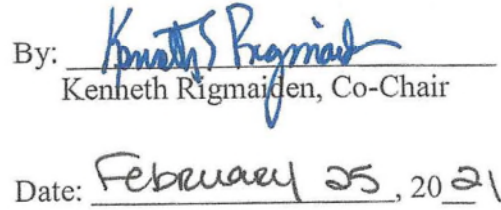 By: Kenneth Rigmaiden
Kenneth Rigmaiden, Co-Chair
Date: February 25, 2021